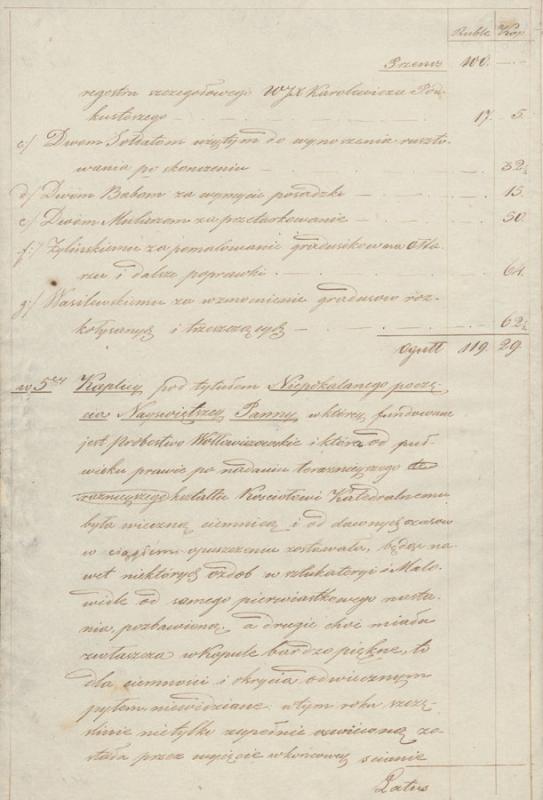 Ruble Kop
Przenos 100. —
regestru szczegółowego WJX Karolewicza Pod-
kustoszego — 17. 5.
c/ Dwom Sołdatom wziętym do wynoszenia ruszto-
wania po skończeniu — 32½
d/ Dwom Babom za wymycie posadzki — 15.
e/ Dwom Mularzom za przetarkowanie — 50.
f/ Żylińskiemu za pomalowanie gradusikow na Ołta-
rzu i dalsze poprawki — 64.
g/ Wasilewskiemu za wzmocnienie gradusow roz-
kołysanych i trzeszczących — 62½
Ogułł 119. 29.
w 5tey Kaplicy pod tytułem Niepokalanego poczę-
cia Nayświętszey Panny, w którey fundowane
jest Probostwo Wołłowiczowskie i która od puł
wieku prawie po nadaniu teraznieyszego
kształtu Kościołowi Katedralnemu
była wieczną ciemnicą i od dawnych czasow
w ciągłém opuszczeniu zostawała, będąc na-
wet niektórych ozdob w sztukateryi i Malo-
widle od samego pierwiastkowego nasta-
nia, pozbawioną, a drugie choć miała
zwłaszcza w Kopule bardzo piękne, te
dla ciemności i okrycia odwiecznym
pyłem niewidziane. w tym roku szczę-
śliwie nietylko zupełnie oświeconą zo-
stała przez wyjęcie w końcowey scianie
Latus